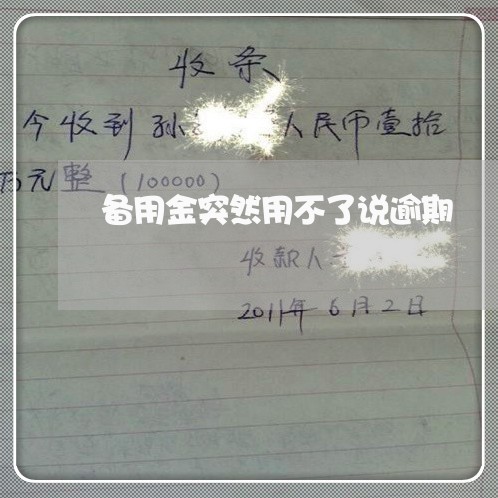 收条
今收到孙 人民币壹拾
万元整(100000)
备用金突然用不了说逾期
收款人
2011年6月2日